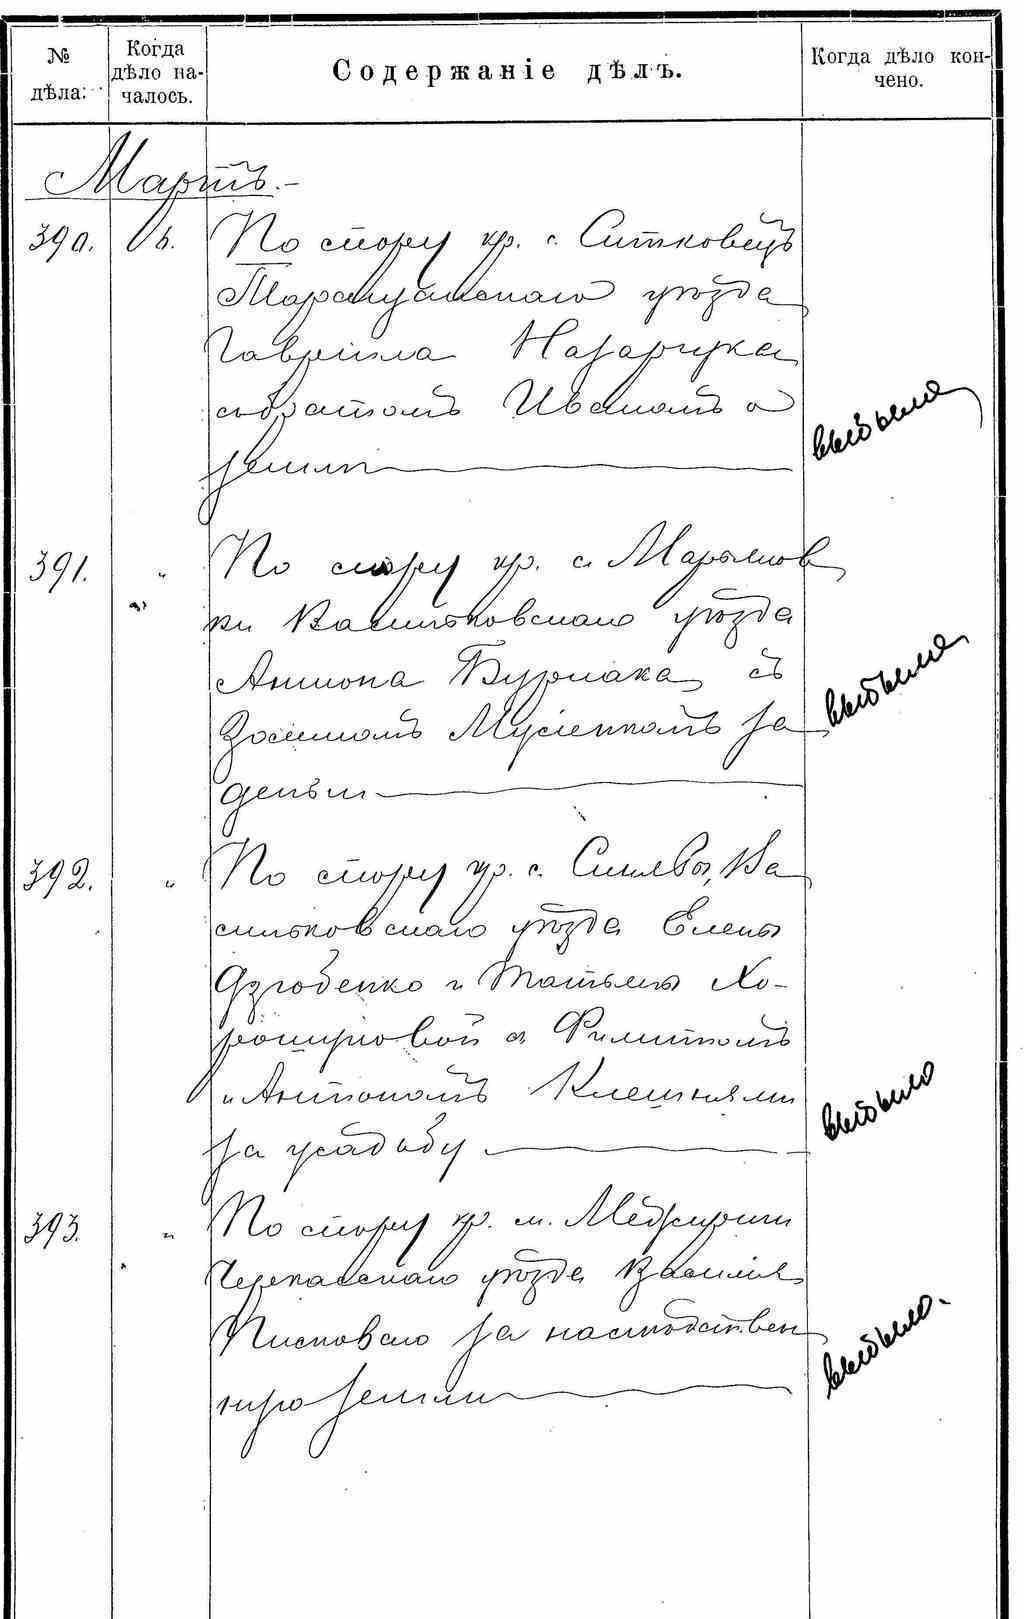 № дѣла:
Когда дѣло на-
чалось.
Содержаніе дѣлъ.
Когда дѣло кон-
чено.
Мартъ.-
390. 6. По спору кр. с. Ситковецъ
Таращанскаго уѣзда
Гавриила Назарчука
съ братомъ Иваномъ о
землѣ
выбыла
391. " По спору кр. с. Марьянов
ки Васильковскаго уѣзда
Антона Бурлака съ
Зосимомъ Мусіенкомъ за
деньги
выбыла
392. " По спору кр. с. Синявы, Ва
сильковскаго уѣзда Елены
Дзюбенко и Татьяны Хо-
рошуновой съ Филиппомъ
и Антономъ Клешнями
за усадьбу
выбыло
393. " По спору кр. м. Межиричи
Черкасскаго уѣзда Василія
Писковаго за наслѣдствен
ную землю
выбыло.